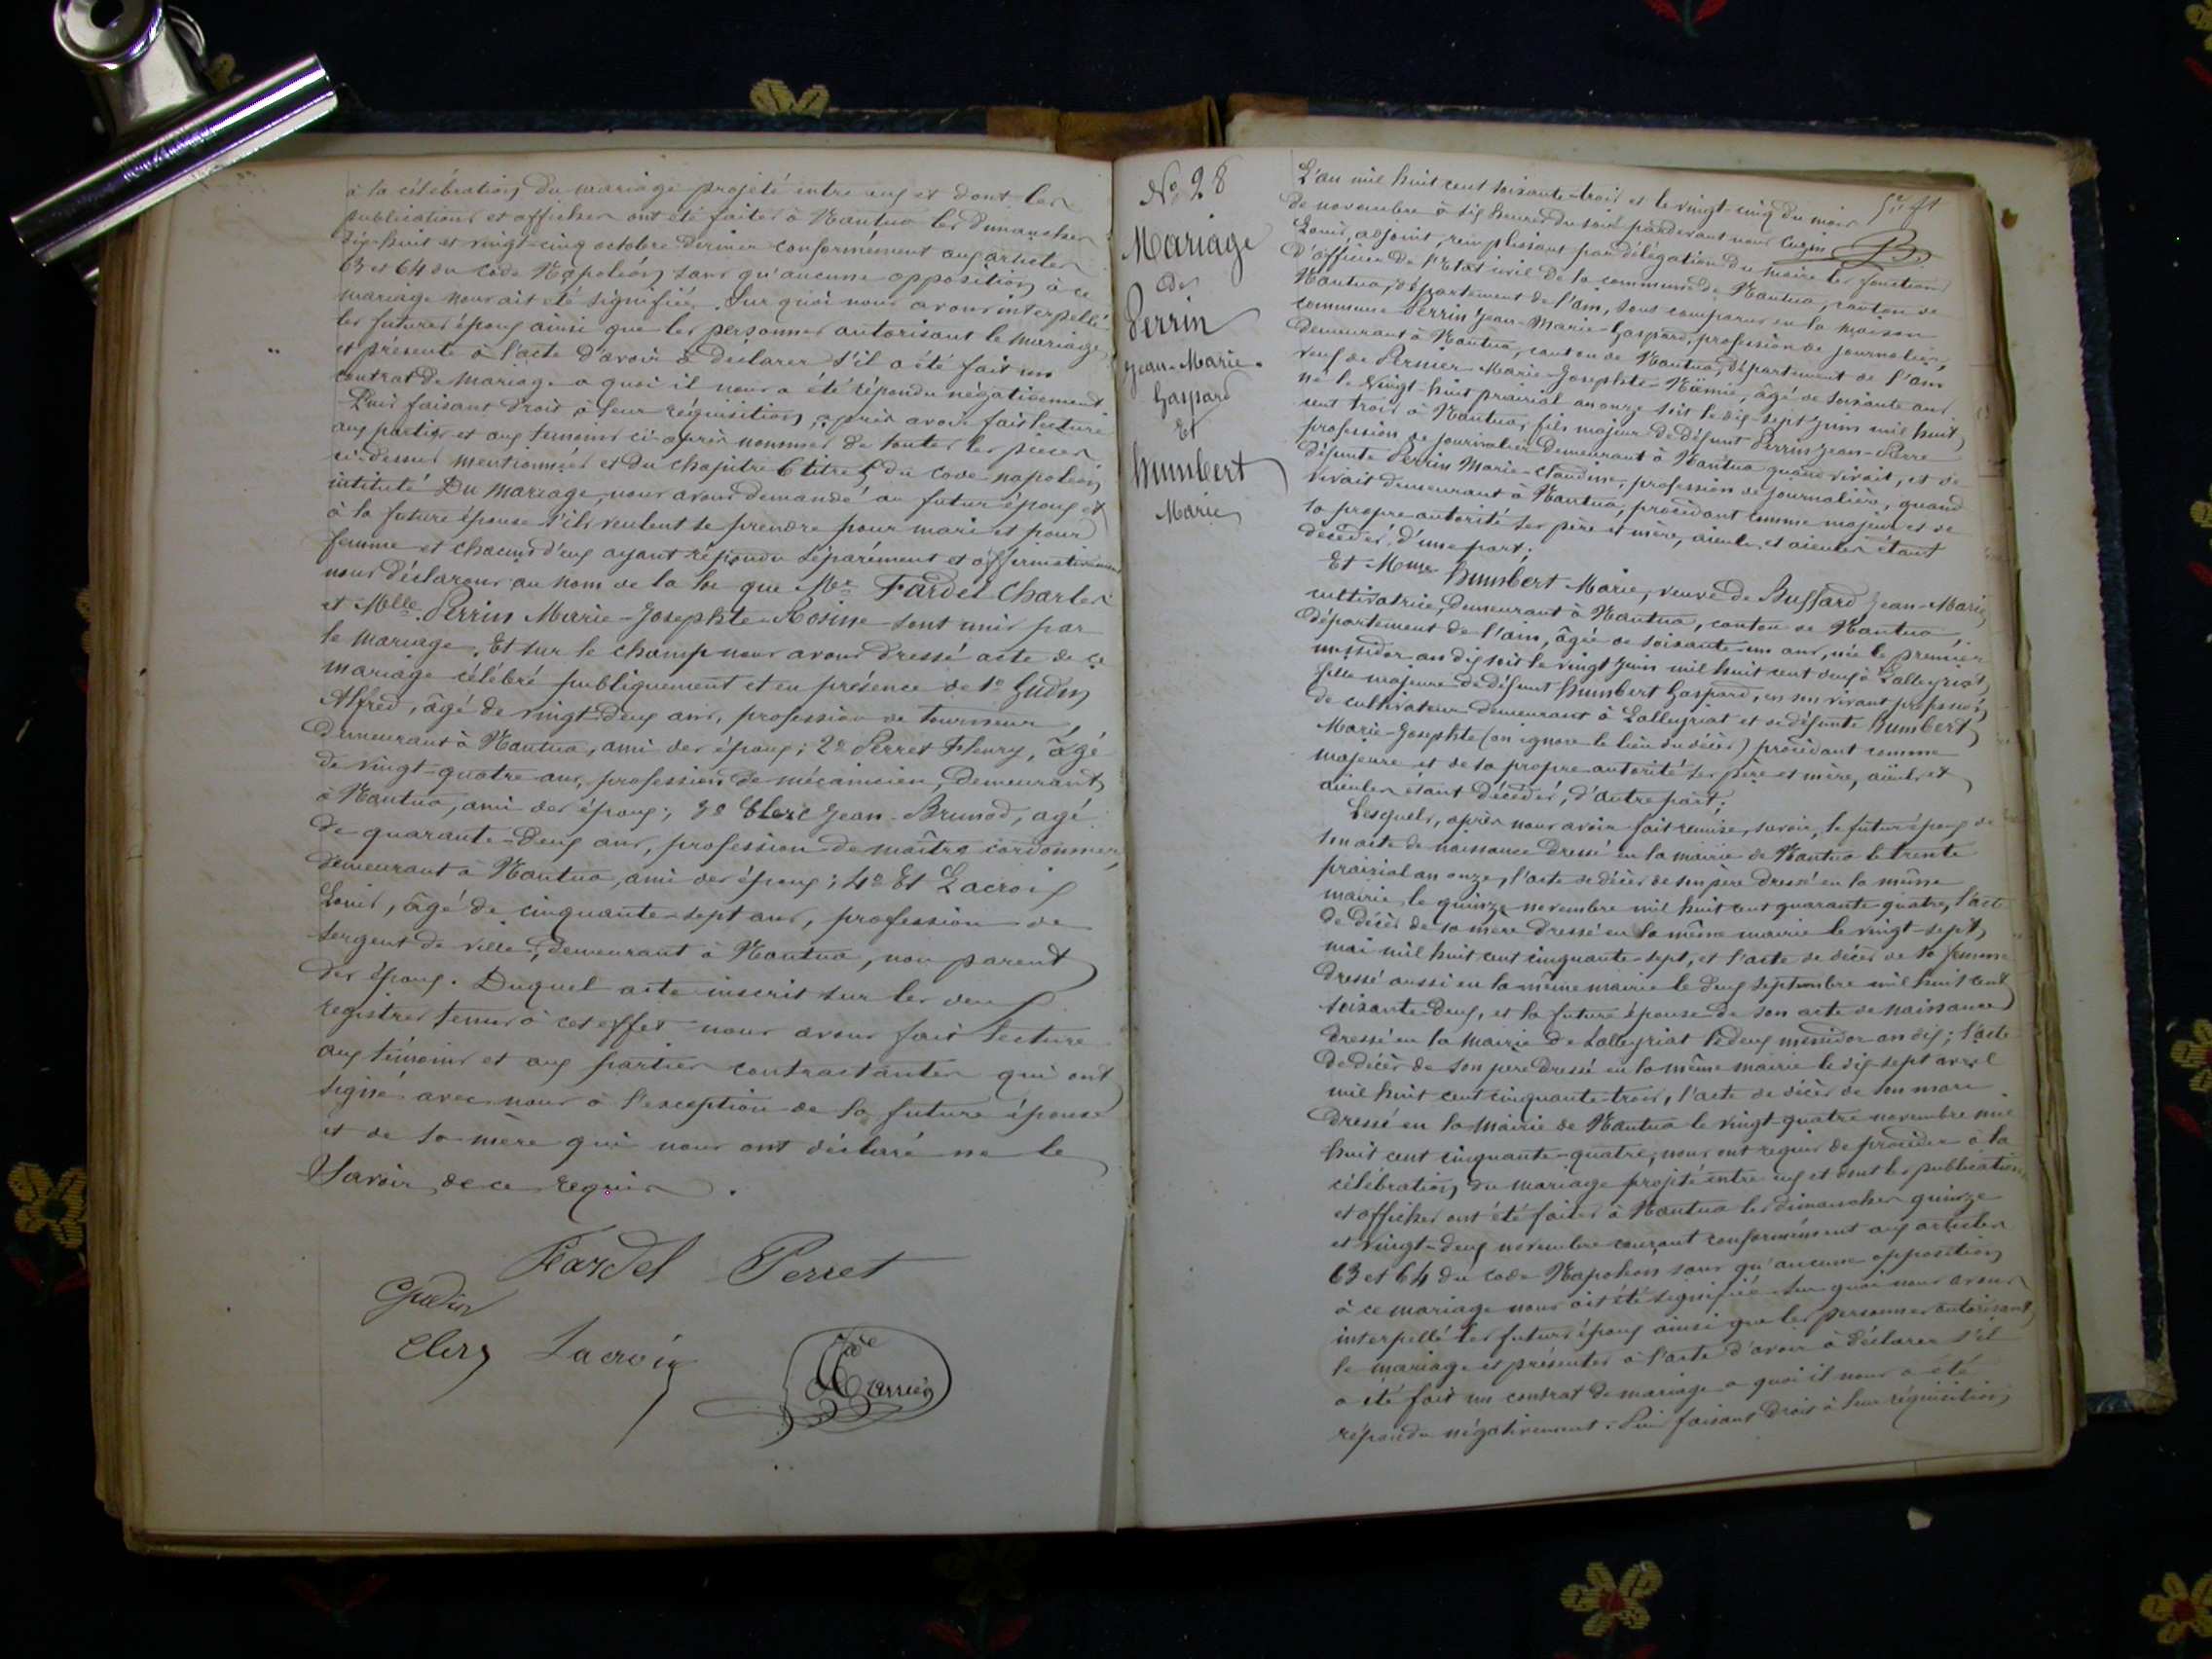 à la célébration du mariage projeté entre eux et dont les
publications et affiches ont été faites à Nantua les dimanches
dix-huit et vingt-cinq octobre dernier conformément aux articles
63 et 64 du code Napoléon, sans qu'aucune opposition à ce
mariage nous ait été signifiée. Sur quoi nous avons interpellé
les futurs époux ainsi que les personnes autorisant le mariage,
et présente à l'acte d'avoir à déclarer s'il a été fait un
contrat de mariage a quoi il nous a été répondu négativement
Puis faisant droit à leur réquisition, après avoir fait lecture
aux parties et aux temoins ci-après nommés de toutes les pièces
ci-dessus mentionnées et du chapitre 6 titre 5 du code napoléon
intitulé Du Mariage, nous avons demandé au futur époux et
à la future épouse s'ils veulent se prendre pour mari et pour
femme et chacun d'eux ayant répondu séparément et affirmativement
nous déclarons au nom de la loi que Mr Fardel Charles
et Melle Perrin Marie-Josephte-Rosine sont unis par
le mariage. Et sur le champ nous avons dressé acte de ce
mariage célébré publiquement et en présence de 1o Gudin
Alfred, âgé de vingt-deux ans, profession de tourneur,
demeurant à Nantua, ami des époux; 2o Perret Fleury, âgé
de vingt-quatre ans, profession de mécanicien, demeurant
à Nantua, ami des époux; 3o Clerc Jean-Brunod, agé
de quarante-deux ans, profession de maître cordonnier,
demeurant à Nantua, ami des époux; 4o Et Lacroix
Louis, âgé de cinquante-sept ans, profession de
sergent de ville, demeurant à Nantua, non parent
des époux. Duquel acte inscrit sur les deux
registres tenus à cet effet nous avons fait lecture
aux témoins et aux parties contractantes qui ont
signé avec nous à l'exception de la future épouse
et de sa mère qui nous ont déclaré ne le
savoir de ce requis.
Fardel Perret
Gudin
Clerc Lacroix
No 28
Mariage
de
Perrin
Jean-Marie-
Gaspard
Et
Humbert
Marie
L'an mil huit cent soixante-trois et le vingt-cinq du mois
de novembre à six heures du soir pardevant nous Cuzin
Louis, adjoint, remplissant par délégation du maire les fonctions
d'officier de l'Etat civil de la commune de Nantua, canton de
Nantua, département de l'ain, sont comparus en la maison
commune Perrin Jean-Marie-Gaspard, profession de journalier,
demeurant à Nantua, canton de Nantua, département de l'ain
veuf de Marie-Josephte, âgé de soixante ans
né le vingt-huit prairial an onze soit le dix-sept juin mil huit
cent trois à Nantua, fils majeur de défunt Perrin Jean-Pierre
profession de journalier demeurant à Nantua quand vivait, et de
défunte Perrin Marie-Claudine, profession de journalière, quand
vivait demeurant à Nantua, procédant comme majeur et de
sa propre autorité ses père et mère, aieuls et aieules étant
décédés, d'une part;
Et Mme Humbert Marie, veuve de Buffard Jean-Marie
cultivatrice, demeurant à Nantua, canton de Nantua,
département de l'ain, âgée de soixante-un ans, née le premier
messidor an dix soit le vingt juin mil huit cent deux à Lalleyriat
fille majeure de défunt Humbert Gaspard, en son vivant
de cultivateur demeurant à Lalleyriat et de défunte Humbert
Marie-Josephte (on ignore le lieu du décès) procédant comme
majeure et de sa propre autorité ses père et mère, aïeuls et
aieules étant décédés, d'autre part;
Lesquels, après nous avoir fait remise, savoir, le futur époux de
son acte de naissance dressé en la mairie de Nantua le trente
prairial an onze, l'acte de décès de son père dressé en la même
mairie le quinze novembre mil huit cent quarante-quatre, l'acte
de décès de sa mère dressé en la même mairie le vingt-sept
mai mil huit cent cinquante-sept, et l'acte de décès de sa femme
dressé aussi en la même mairie le deux septembre mil huit cent
soixante-deux, et la future épouse de son acte de naissance
dressé en la mairie de Lalleyriat le deux messidor an dix; l'acte
de décès de son père dressé en la même mairie le dix-sept avril
mil huit cent cinquante-trois, l'acte de décès de son mari
dressé en la mairie de Nantua le vingt-quatre novembre mil
huit cent cinquante-quatre, nous ont requis de procéder à la
célébration du mariage projeté entre eux et dont les publications
et affiches ont été faites à Nantua les dimanches quinze
et vingt-deux novembre courant conformément aux articles
63 et 64 du code Napoléon sans qu'aucune opposition
à ce mariage nous ait été signifiée. Sur quoi nous avons
interpellé les futurs époux ainsi que les personnes autorisant
le mariage et présentes à l'acte d'avoir à déclarer s'il
a été fait un contrat de mariage a quoi il nous a été
répondu négativement. Puis faisant droit à leur réquisition